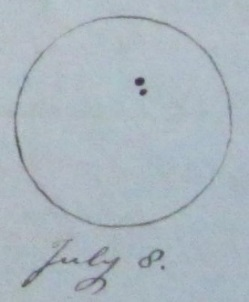 July 8.